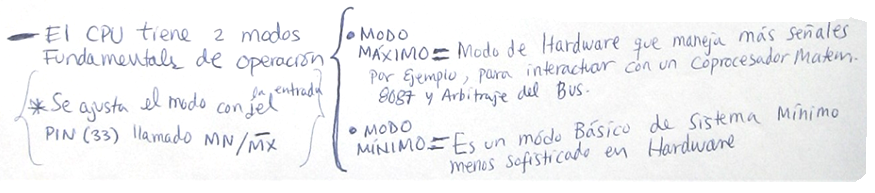 — El CPU tiene 2 modos
Fundamentals de operación
* Se ajusta el modo con la entrada del
PIN (33) llamado MN/M̅X̅
• MODO
MÁXIMO = Modo de Hardware que maneja más señales
por Ejemplo, para interactuar con un coprocesador Matem.
8087 y Arbitraje del Bus.
• MODO
MÍNIMO = Es un módo Básico de Sistema Mínimo
menos sofisticado en Hardware